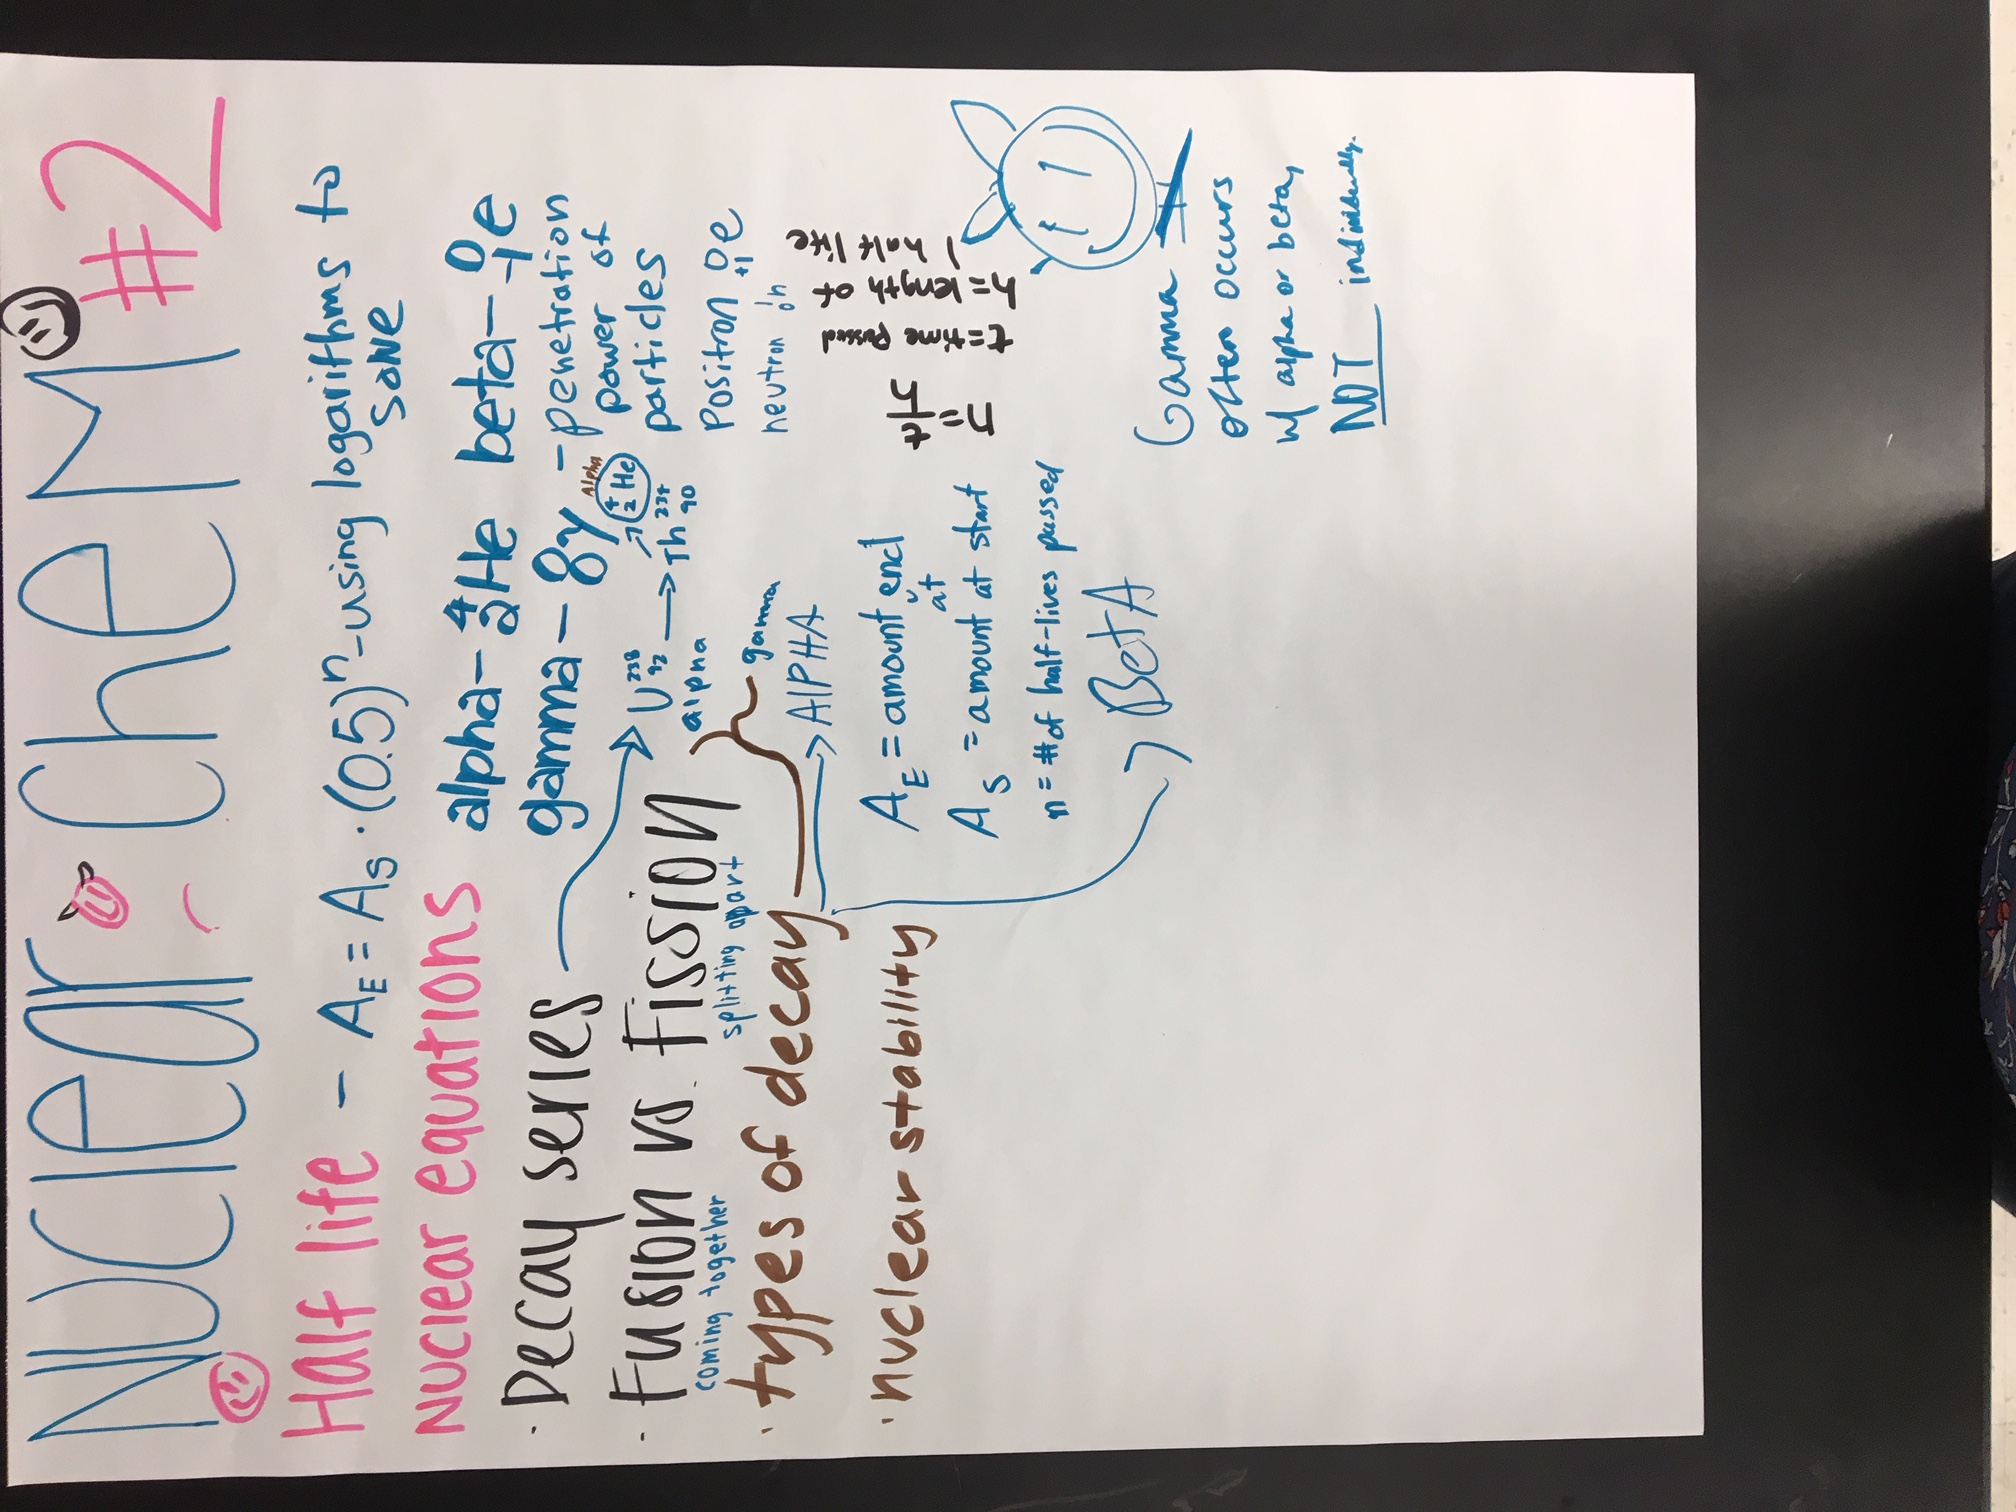 NUCLEAr CheM #2
Half life - A_E = A_S · (0.5)^n - using logarithms to
solve
Nuclear equations
alpha - ⁴₂He beta - ⁰₋₁e
gamma - 8γ - penetration
power of
particles
· Decay series
U ²³⁸₉₂ → Th ²³⁴₉₀
Alpha
⁴₂He
alpha
Positron ⁰₊₁e
neutron ¹₀n
· Fusion vs. Fission
coming together
splitting apart
· types of decay
gamma
AlPHA
BetA
· nuclear stability
A_E = amount at end
A_S = amount at start
n = # of half-lives passed
n = t/h
t = time passed
h = length of
1 half life
Gamma
often occurs
w/ alpha or beta,
NOT individually.